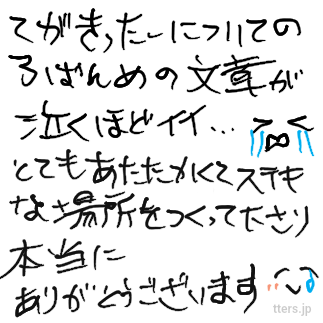 てがきったーについての
ろばんめの文章が
泣くほどイイ…
とてもあたたかくてステキ
なよさ場所をつくってたさり
本当に
ありがとうございます
tters.jp